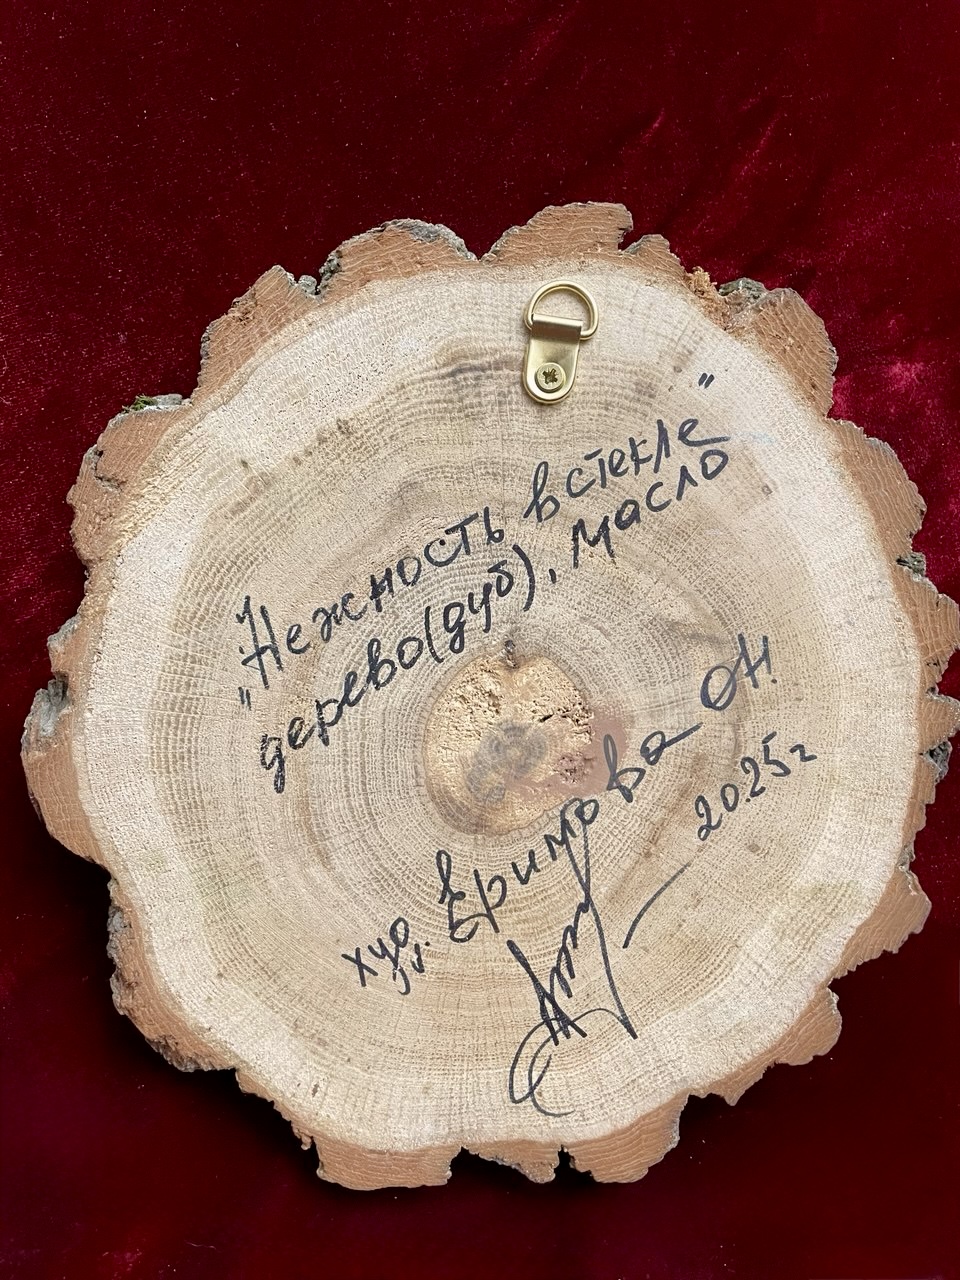 "Нежность в стекле"
дерево(дуб), масло
худ. Еримова ОН.
2025г